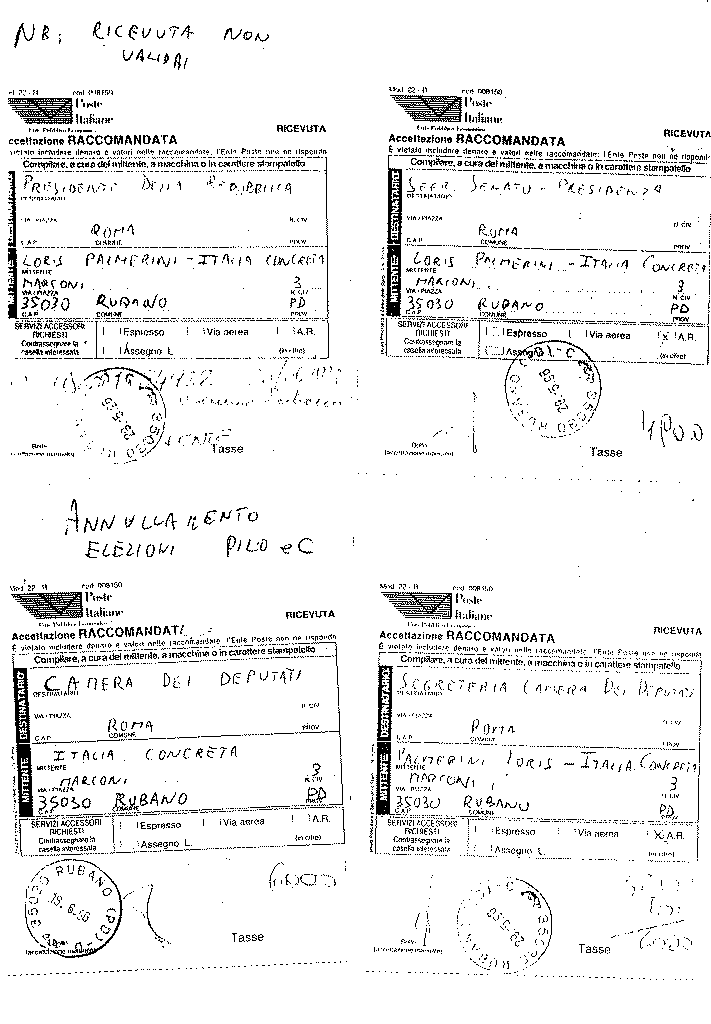 NB: RICEVUTA NON
VALIDA!
Mod. 22 - R cod. 008150
Poste
Italiane
Ente Pubblico Economico
RICEVUTA
Accettazione RACCOMANDATA
È vietato includere denaro e valori nelle raccomandate: l'Ente Poste non ne risponde
Compilare, a cura del mittente, a macchina o in carattere stampatello
DESTINATARIO
PRESIDENTE DELLA REPUBBLICA
DESTINATARIO
VIA / PIAZZA N. CIV.
ROMA
C.A.P. COMUNE PROV.
MITTENTE
LORIS PALMERINI - ITALIA CONCRETA
MITTENTE
MARCONI 3
VIA / PIAZZA N. CIV
35030 RUBANO PD
C.A.P. COMUNE PROV
SERVIZI ACCESSORI
RICHIESTI
Contrassegnare la
casella interessata
Espresso Via aerea A.R.
Assegno L. (in cifre)
Tasse
Mod. 22 - R cod. 008150
Poste
Italiane
Ente Pubblico Economico
RICEVUTA
Accettazione RACCOMANDATA
È vietato includere denaro e valori nelle raccomandate: l'Ente Poste non ne risponde
Compilare, a cura del mittente, a macchina o in carattere stampatello
DESTINATARIO
SEGR. SENATO - PRESIDENZA
DESTINATARIO
VIA / PIAZZA N. CIV
ROMA
C.A.P. COMUNE PROV
MITTENTE
LORIS PALMERINI - ITALIA CONCRETA
MITTENTE
MARCONI 3
VIA / PIAZZA N. CIV
35030 RUBANO PD
C.A.P. COMUNE PROV
SERVIZI ACCESSORI
RICHIESTI
Contrassegnare la
casella interessata
Espresso Via aerea X A.R.
Assegno L. (in cifre)
Bollo
(accettazione manuale)
Tasse
ANNULLAMENTO
ELEZIONI PILO e C
Mod. 22 - R cod. 008150
Poste
Italiane
Ente Pubblico Economico
RICEVUTA
Accettazione RACCOMANDATA
È vietato includere denaro e valori nelle raccomandate: l'Ente Poste non ne risponde
Compilare, a cura del mittente, a macchina o in carattere stampatello
DESTINATARIO
CAMERA DEI DEPUTATI
DESTINATARIO
VIA / PIAZZA N. CIV
ROMA
C.A.P. COMUNE PROV
MITTENTE
ITALIA CONCRETA
MITTENTE
MARCONI 3
VIA / PIAZZA N. CIV
35030 RUBANO PD
C.A.P. COMUNE PROV
SERVIZI ACCESSORI
RICHIESTI
Contrassegnare la
casella interessata
Espresso Via aerea A.R.
Assegno L. (in cifre)
35030 RUBANO (PD)
6000
(accettazione manuale)
Tasse
Mod. 22 - R cod. 008150
Poste
Italiane
Ente Pubblico Economico
RICEVUTA
Accettazione RACCOMANDATA
È vietato includere denaro e valori nelle raccomandate: l'Ente Poste non ne risponde
Compilare, a cura del mittente, a macchina o in carattere stampatello
DESTINATARIO
SEGRETERIA CAMERA DEI DEPUTATI
DESTINATARIO
VIA / PIAZZA N. CIV
ROMA
C.A.P. COMUNE PROV
MITTENTE
PALMERINI LORIS - ITALIA CONCRETA
MITTENTE
MARCONI 3
VIA / PIAZZA N. CIV
35030 RUBANO PD
C.A.P. COMUNE PROV
SERVIZI ACCESSORI
RICHIESTI
Contrassegnare la
casella interessata
Espresso Via aerea X A.R.
Assegno L. (in cifre)
6000
Bollo
(accettazione manuale)
Tasse